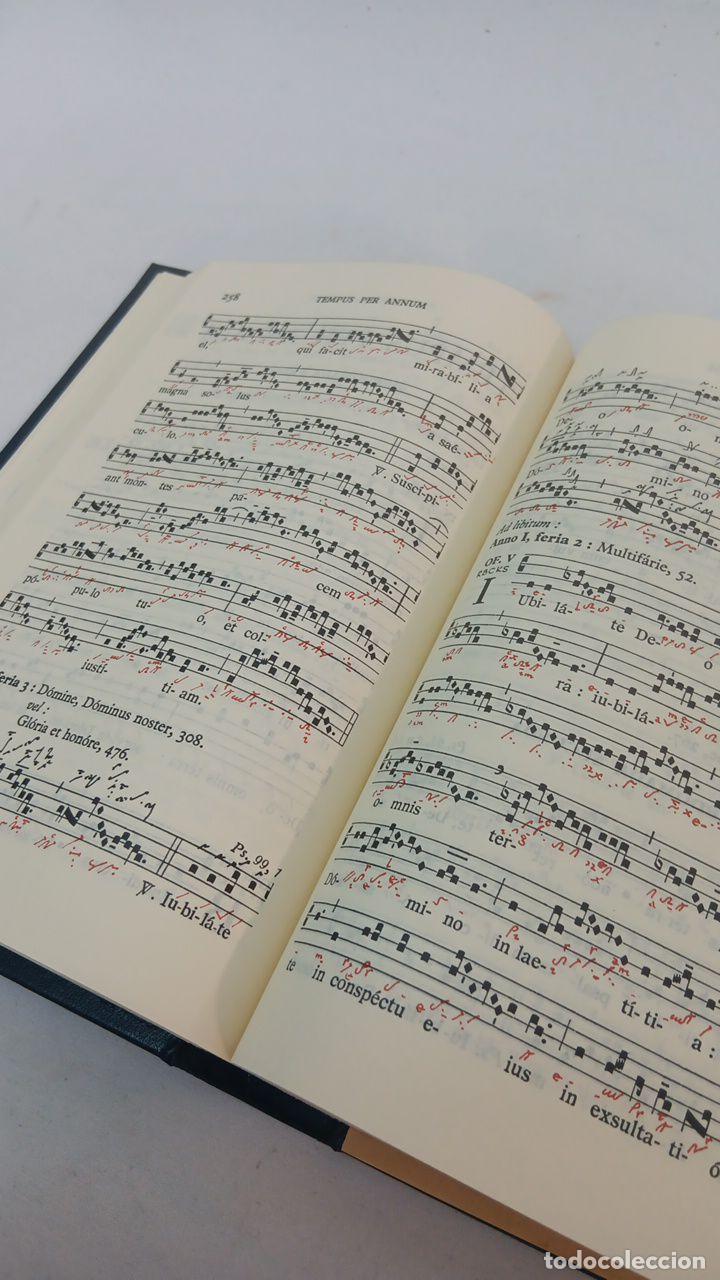 258
TEMPUS PER ANNUM
el, qui facit mi- ra- bí- li- a
mágna so- lus a saé-
cu- lo. ℣. Suscí- pi-
ant món- tes pa-
cem
pó- pu- lo tu- o, et col-
les iustí- ti- am.
feria 3 : Dómine, Dóminus noster, 308.
vel :
Glória et honóre, 476.
Ps. 99, 1
℣. Iu- bi- lá- te
De- o o-
Dó- mi- no
Ad libitum :
Anno I, feria 2 : Multifárie, 52.
OF. V
RBCKS
I Ubi- lá- te De- o
rá : iu- bi- lá-
o- mnis ter-
Dó- mi- no in lae- tí- ti- a :
te in conspéctu e- ius in exsulta- ti- ó
todocoleccion